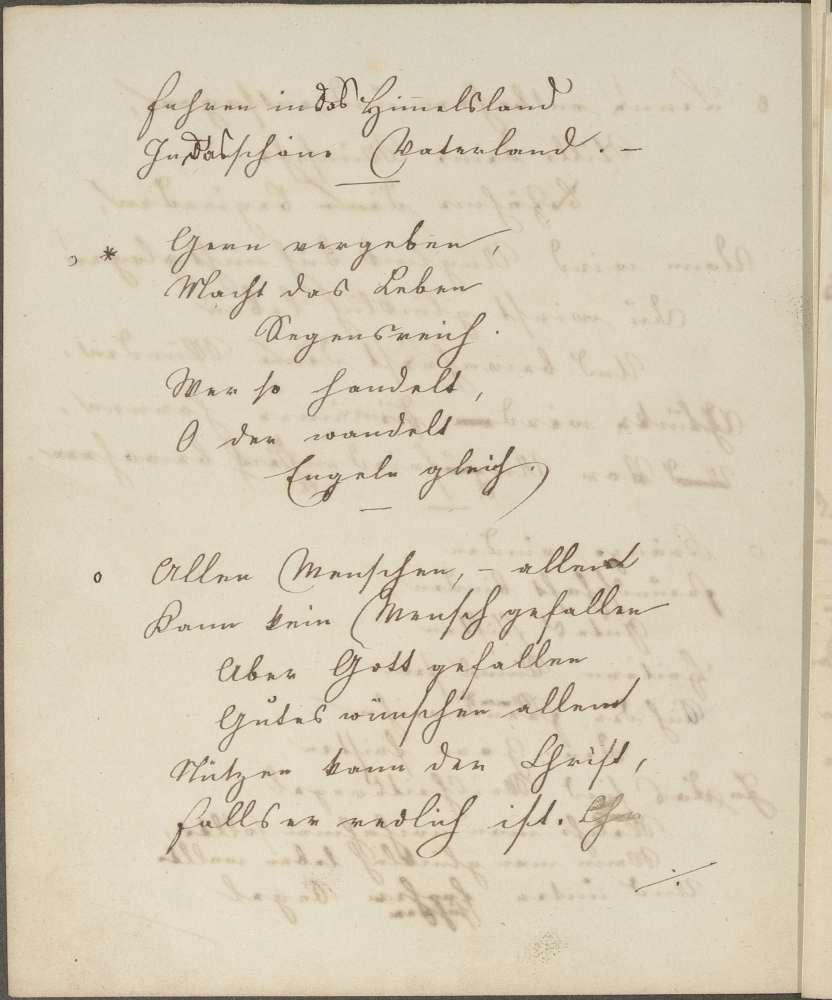 fahren in das Himmelsland
In das schöne Vaterland. –
* Gern vergeben,
Macht das Leben
Segensreich.
Wer so handelt,
O der wandelt
Engeln gleich.
o Allen Menschen, – allen
Kann kein Mensch gefallen
Aber Gott gefallen
Gutes wünschen allen
Nützen kann der Christ,
falls er redlich ist.